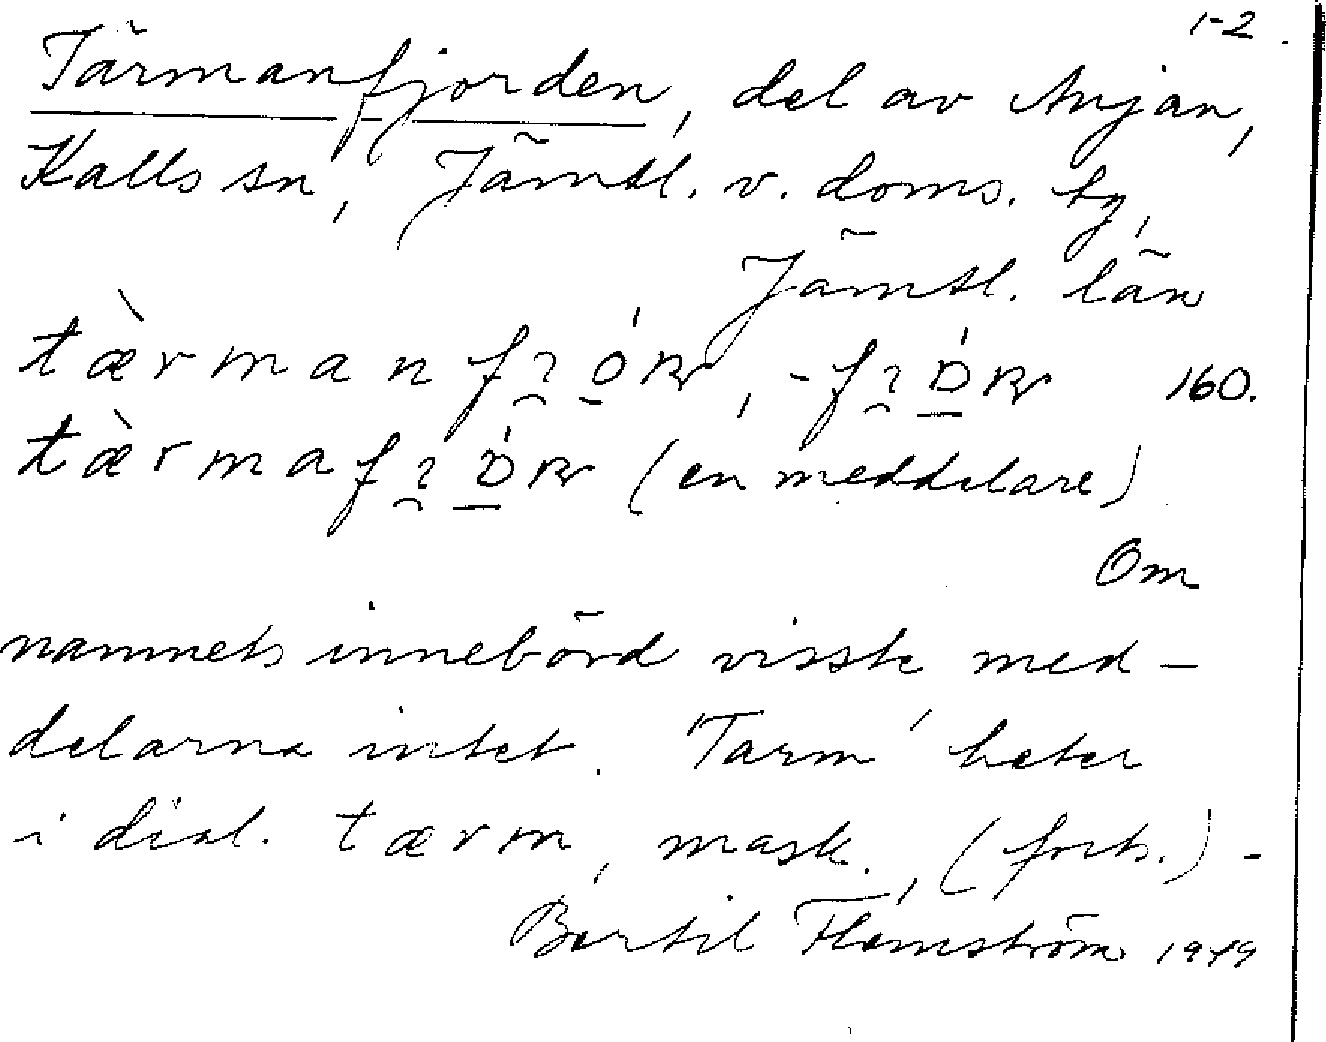 1-2.
Tärmanfjorden, del av Anjan,
Kalls sn, Jämtl. v. doms. tg,
Jämtl. län
tæ̀rman 160.
tæ̀rma (en meddelare)
Om
namnets innebörd visste med-
delarna intet. 'Tarm' heter
i dial. tærm, mask., (forts.) -
Bertil Flemström 1949